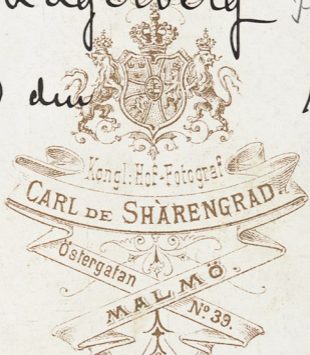 den
Kongl: Hof-Fotograf
CARL DE SHÀRENGRAD
Östergatan
MALMÖ.
No. 39.